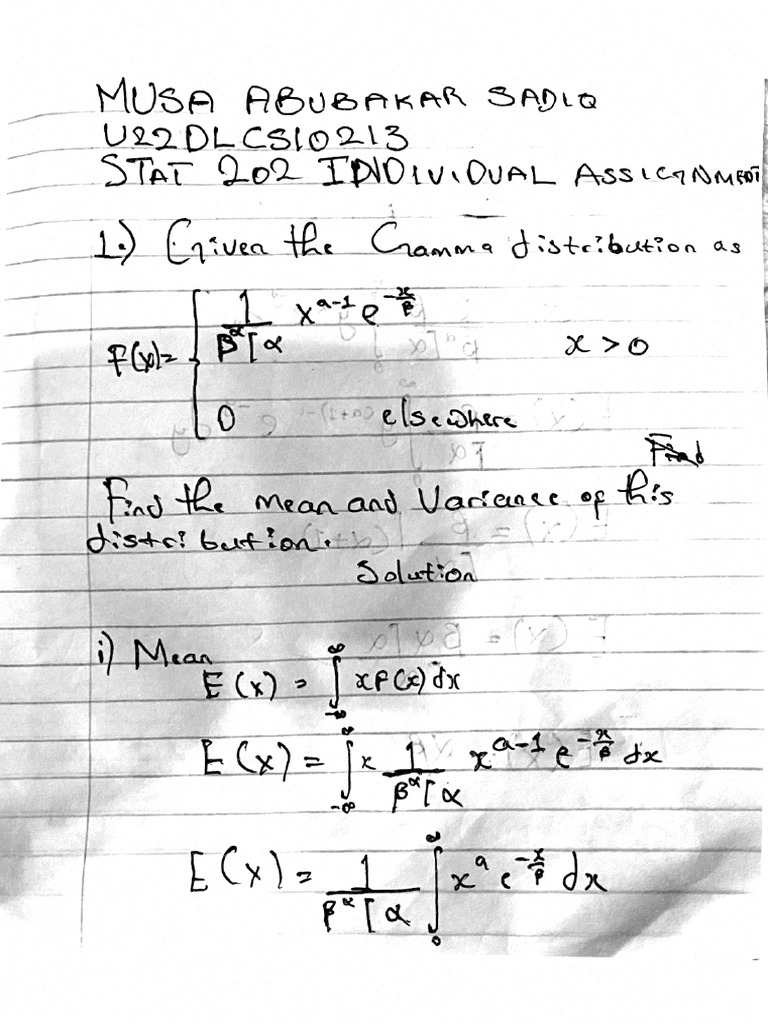 MUSA ABUBAKAR SADIQ
U22DLCS10213
STAT 202 INDIVIDUAL ASSIGNMENT
1.) Given the Gamma distribution as
f(x)= { 1/(β^α Γα) x^(α-1) e^(-x/β) x > 0
0 elsewhere
Find the mean and Variance of this
distribution.
Solution
i) Mean
E(x) = ∫_{-∞}^{∞} x f(x) dx
E(x) = ∫_{-∞}^{∞} x 1/(β^α Γα) x^(α-1) e^(-x/β) dx
E(x) = 1/(β^α Γα) ∫_{0}^{∞} x^α e^(-x/β) dx